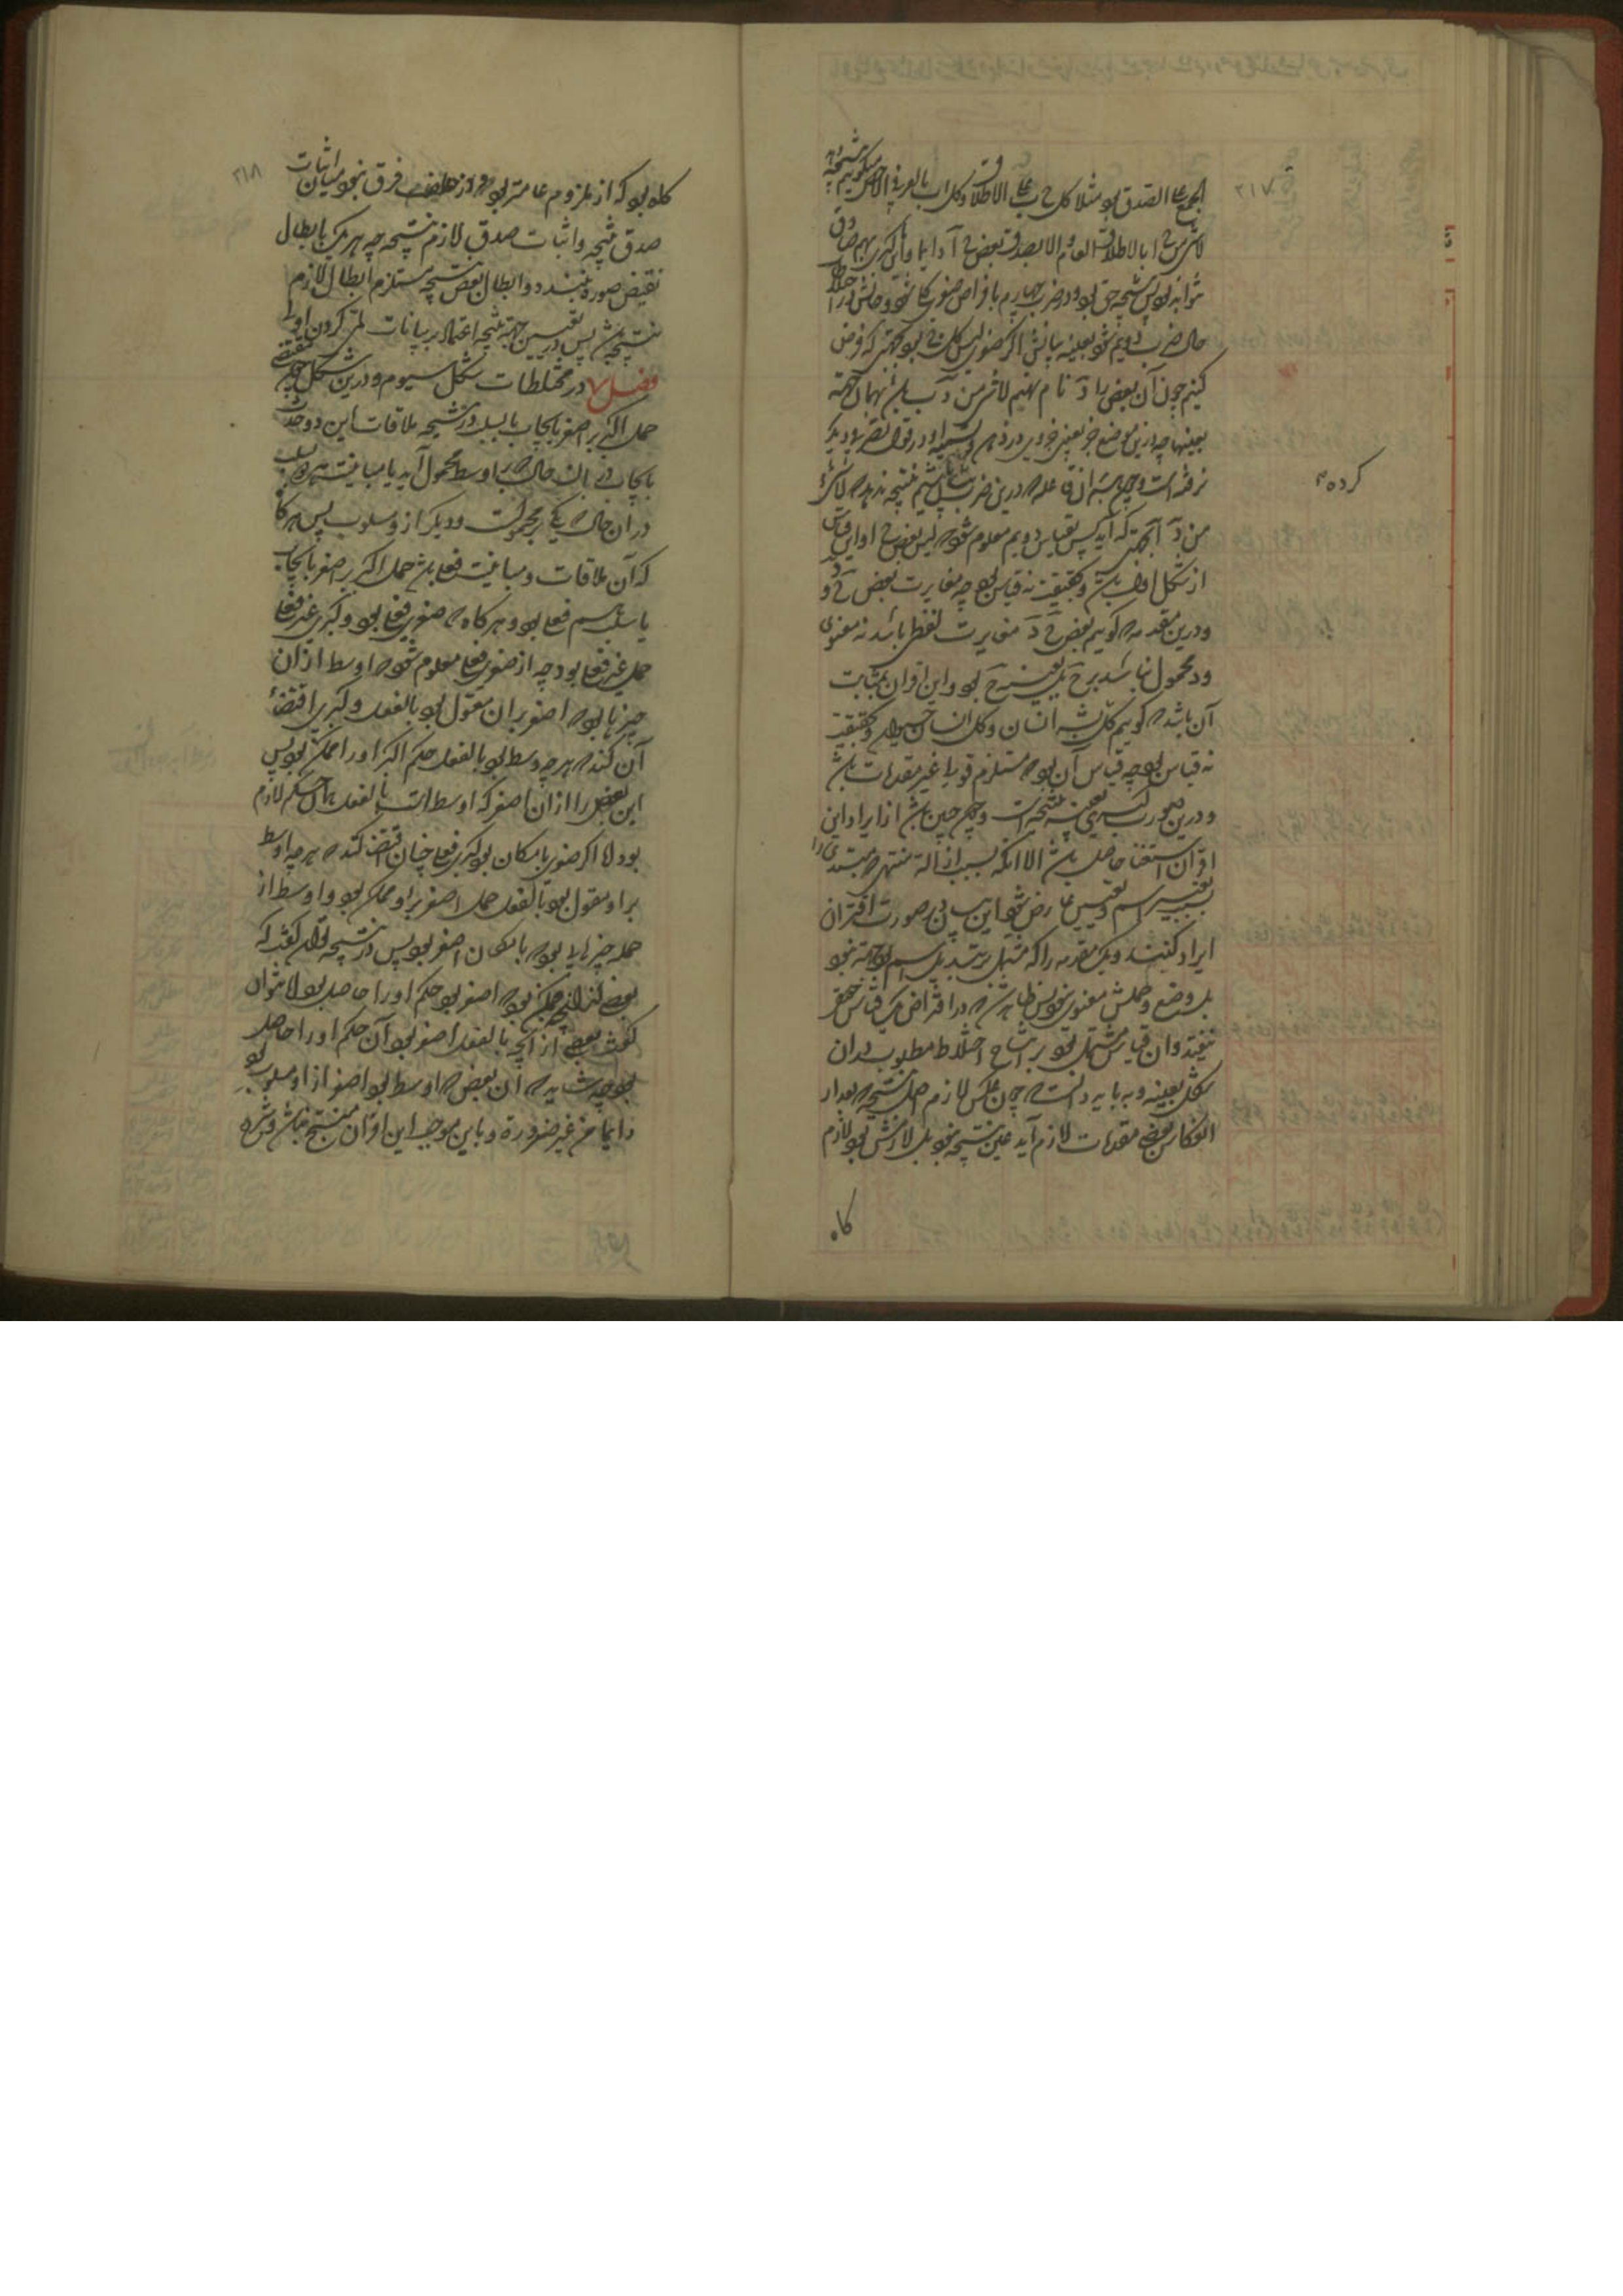 ۲۱۷
الجمع علی الصدق بود مثلا کل ج ب علی الاطلاق وکل اب بالعرفی الاخص میگوییم نتیجه دهد
لاشی من ج ا بالاطلاق العام والا لصدق بعض ج آ دایما و با کبری بهم صادق
نتواند بود پس نتیجه حق بود ودر ضرب چهارم بافتراض صغری کلی شود وحالش در اختلاط
حال ضرب دویم شود بعینه بیانش اگر صغری لیس کل ج ب بود بجهتی که فرض
کنیم چون آن بعض را د نام نهیم لاشی من د ب باشد بهمان جهت
بعینها چه درین موضع جز تعیین جزوی در ذهن وتسمیه او در قول تصرفی دیگر
نرفته است
کرده
من د آ بجهتی که آید پس بقیاس دویم معلوم شود که لیس بعض ج ا واین قیاس
از شکل اول باشد وبحقیقت نه قیاس بود چه مغایرت بعض ج و د
ودرین مقدمه که گوییم بعض ج د مغایرت لفظی باشد نه معنوی
ود محمول نباشد بر ج بل بعینه ج بود واین اقتران بمثابت
آن باشد که گوییم کل بشر انسان وکل انسان حیوان وبحقیقت
نه قیاس بود چه قیاس آن بود که مستلزم قولی غیر مقدمات باشد
ودرین صورت کبری بعینه نتیجه است وچون چنین باشد از ایراد این
اقتران استغنا حاصل باشد الا آنکه بسبب ازالة مبتدی را
بسبب تغییر اسم وتعیین عارض شود این بیان بر صورت اقتران
ایراد کنند ویک مقدمه را که مشتمل بر تبدیل اسم بود جهت نبود
بل وضع وحملش معنوی نبود پس ظاهر شد که در افتراض یک قیاس محقق
نیفتد وآن قیاس مشتمل بود بر انتاج اختلاط مطلوب در آن
شکل بعینه وبباید دانست که چون عکس لازم اصل نتیجه که بعد از
انعکاس بعضی مقدمات لازم آید عین نتیجه نبود بل لازمش بود ولازم
کاه
۲۱۸
کاه بود که از ملزوم عامتر بود ودر خلف فرق نبود میان اثبات
صدق نتیجه واثبات صدق لازم نتیجه چه هر یک بابطال
نقیض صورت بندد وابطال نقیض نتیجه مستلزم ابطال لازم
نتیجه باشد پس در تعیین جهت نتیجه اعتماد بر بیانات لمی کردن اولی
فصل ۷ در مختلطات شکل سیوم ودرین شکل مقتضی
حمل اکبر بر اصغر بایجاب یا بسلب در نتیجه ملاقات این دو حد است
بایجاب در آن حال که بر اوسط محمول آید یا مباینت هر دو بسلب
در آن حال که یکی بر محمولست ودیگر ازو مسلوب پس هرگاه
که آن ملاقات ومباینت فعلی باشد حمل اکبر بر اصغر بایجاب
یا سلب هم فعلی بود وهر گاه که صغری فعلی بود وکبری غیر فعلی
حمل غیر فعلی بود چه از صغری فعلی معلوم شود که اوسط از آن
چیزها بود که اصغر بر آن مقول بود بالفعل وکبری اقتضاء
آن کند که هر چه اوسط بود بالفعل حکم اکبر او را ممکن بود پس
این بعض را از آن اصغر که اوسط است بالفعل همان حکم لازم
بود واما اگر صغری بامکان بود وکبری فعلی چنان اقتضا کند که هر چه اوسط
بر او مقول بود بالفعل حمل اصغر بر او ممکن بود واوسط از
جمله چیزهایی بود که بامکان اصغر بود پس در نتیجه توان گفت که
بعضی از آنچه ممکن بود که اصغر بود حکم او را حاصل بود اما نتوان
گفت بعضی از آنچه بالفعل اصغر بود آن حکم او را حاصل
بود چه شاید که آن بعض که اوسط بود اصغر از او مسلوب بود
دایما من غیر ضرورة وباین موجب این اقتران منتج نباشد